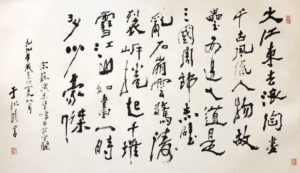 大江東去浪淘盡
千古風流人物故
壘西邊人道是
三國周郎赤壁
亂石崩雲驚濤
裂岸捲起千堆
雪江山如畫一時
多少豪傑